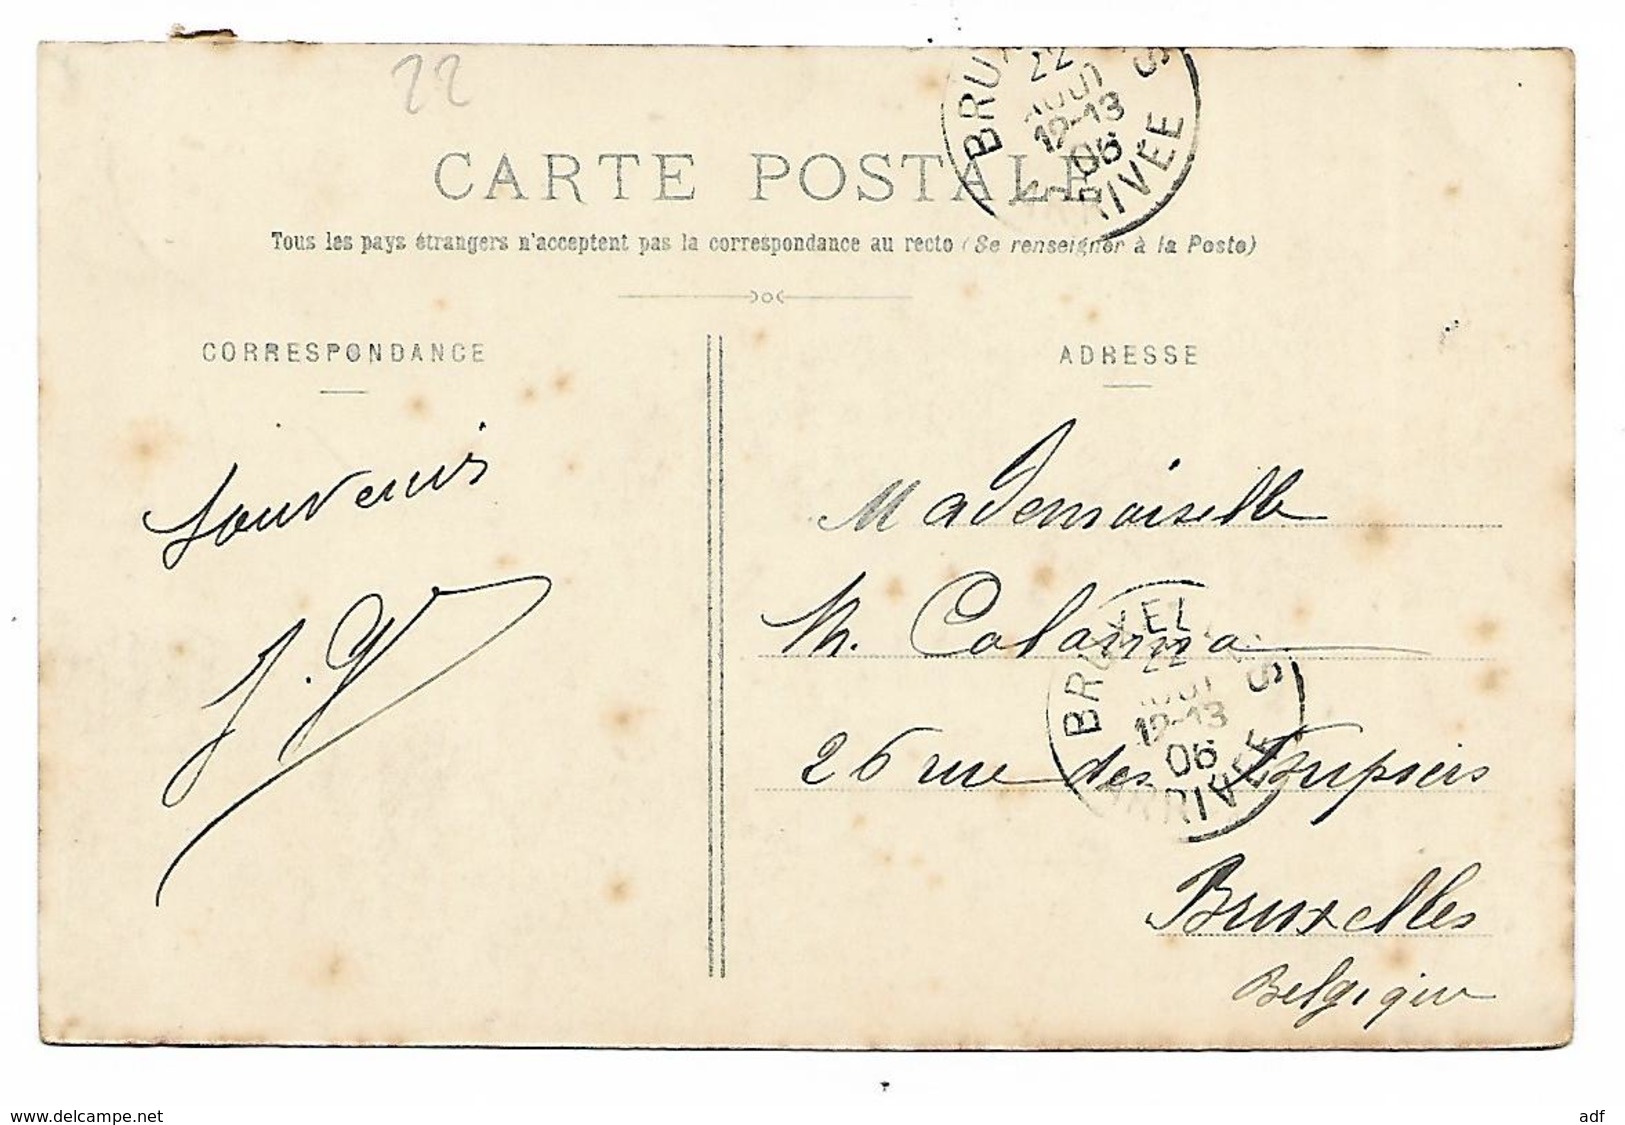 22
BRUXELLES
22
AOUT
12-13
06
ARRIVÉE
CARTE POSTALE
Tous les pays étrangers n'acceptent pas la correspondance au recto (Se renseigner à la Poste)
CORRESPONDANCE
ADRESSE
Souvenirs
Mademoiselle
M.
26 rue des
Bruxelles
Belgique
BRUXELLES
22
AOUT
12-13
06
ARRIVÉE
www.delcampe.net
adf